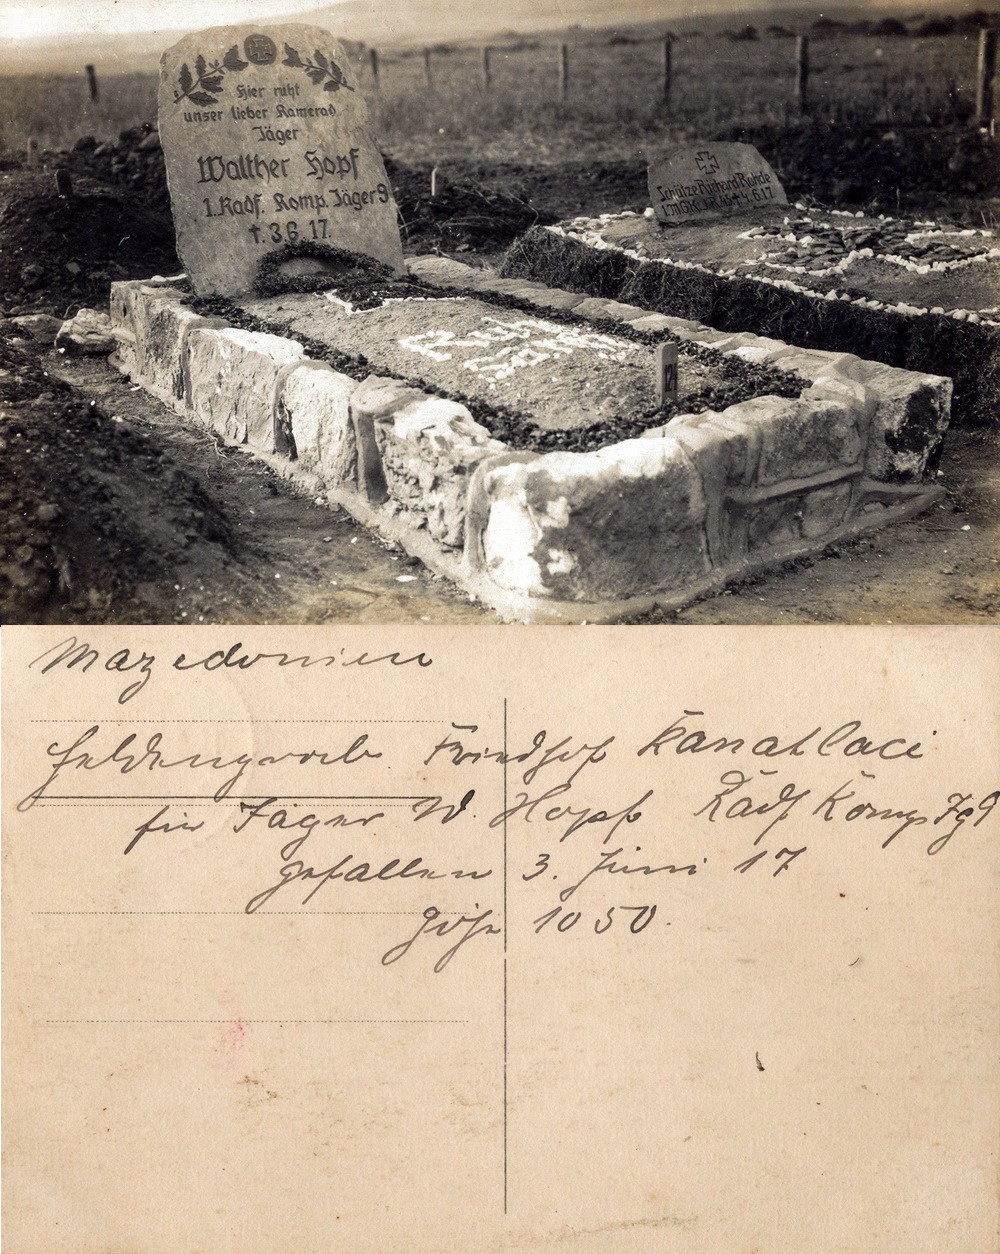 Hier ruht
unser lieber Kamerad
Jäger
Walther Hopf
1. Radf. Komp. Jäger 9
†. 3.6.17.
Schütze Richard Rohde
† 4.6.17.
Ruhe
sanft
124
Mazedonien
Heldengrab Friedhof Kanatlaci
für Jäger W. Hopf Radf Komp Jg 9
gefallen 3. Juni 17
Höhe 1050.